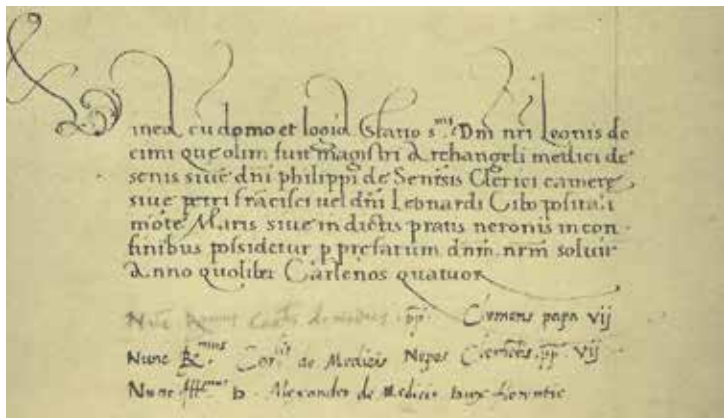 Vinea cū domo et logia Statio s.ᵐⁱ Dm̄ nri Leonis de
cimi que olim fuit magistri Archangeli medici de
senis siue dn̄i philippi de Senis Clerici camere
siue petri frācisci uel dn̄i Leonardi Cibo posita i
mōte Maris siue in dictis pratis neronis in con
finibus possidetur p prefatum dnm̄ nrm̄ soluit
Anno quolibet Carlenos quatuor
Nūc de medicis pp. Clemens papa vij
Nunc R.ᵐᵘˢ Cor.ˡⁱˢ de Medicis Nepos Clemētis pp. vij
Nunc Ill.ᵐᵘˢ D. Alexander de Medicis Dux florentie